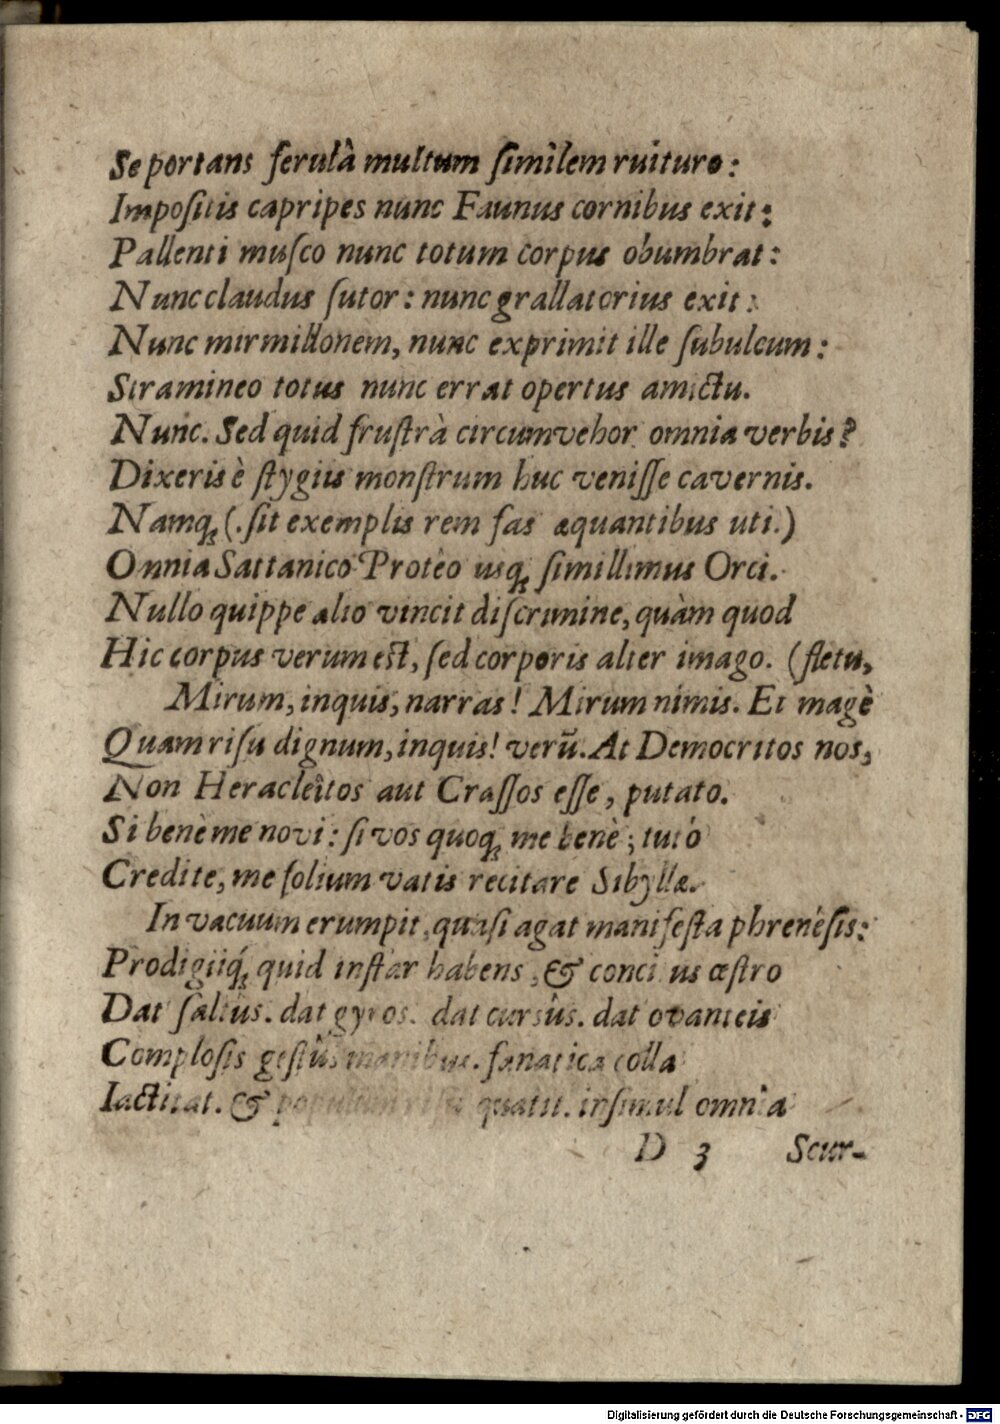 Se portans ferulâ multum ſimilem ruituro:
Impoſitis capripes nunc Faunus cornibus exit:
Pallenti muſco nunc totum corpus obumbrat:
Nunc claudus ſutor: nunc grallatorius exit:
Nunc mirmillonem, nunc exprimit ille ſubulcum:
Stramineo totus nunc errat opertus amictu.
Nunc. Sed quid fruſtrà circumvehor omnia verbis?
Dixeris è ſtygiis monſtrum huc veniſſe cavernis.
Namq; (. ſit exemplis rem fas æquantibus uti.)
Omnia Sattanico Proteo usq; ſimillimus Orci.
Nullo quippe alio vincit diſcrimine, quàm quod
Hic corpus verum eſt, ſed corporis alter imago. (fletu,
Mirum, inquis, narras! Mirum nimis. Et magè
Quam riſu dignum, inquis! verū. At Democritos nos,
Non Heracleîtos aut Craſſos eſſe, putato.
Si benè me novi: ſi vos quoq; me benè; tutò
Credite, me folium vatis recitare Sibyllæ.
In vacuum erumpit, quaſi agat manifeſta phrenêſis:
Prodigiiq́; quid inſtar habens, & conci us œſtro
Dat ſaltus. dat gyros. dat cursûs. dat ovanteis
Comploſis geſtûs manibus. fanatica colla
Iactitat. & populum riſu quatit. inſimul omnia
D 3 Scur-
Digitalisierung gefördert durch die Deutsche Forschungsgemeinschaft - DFG